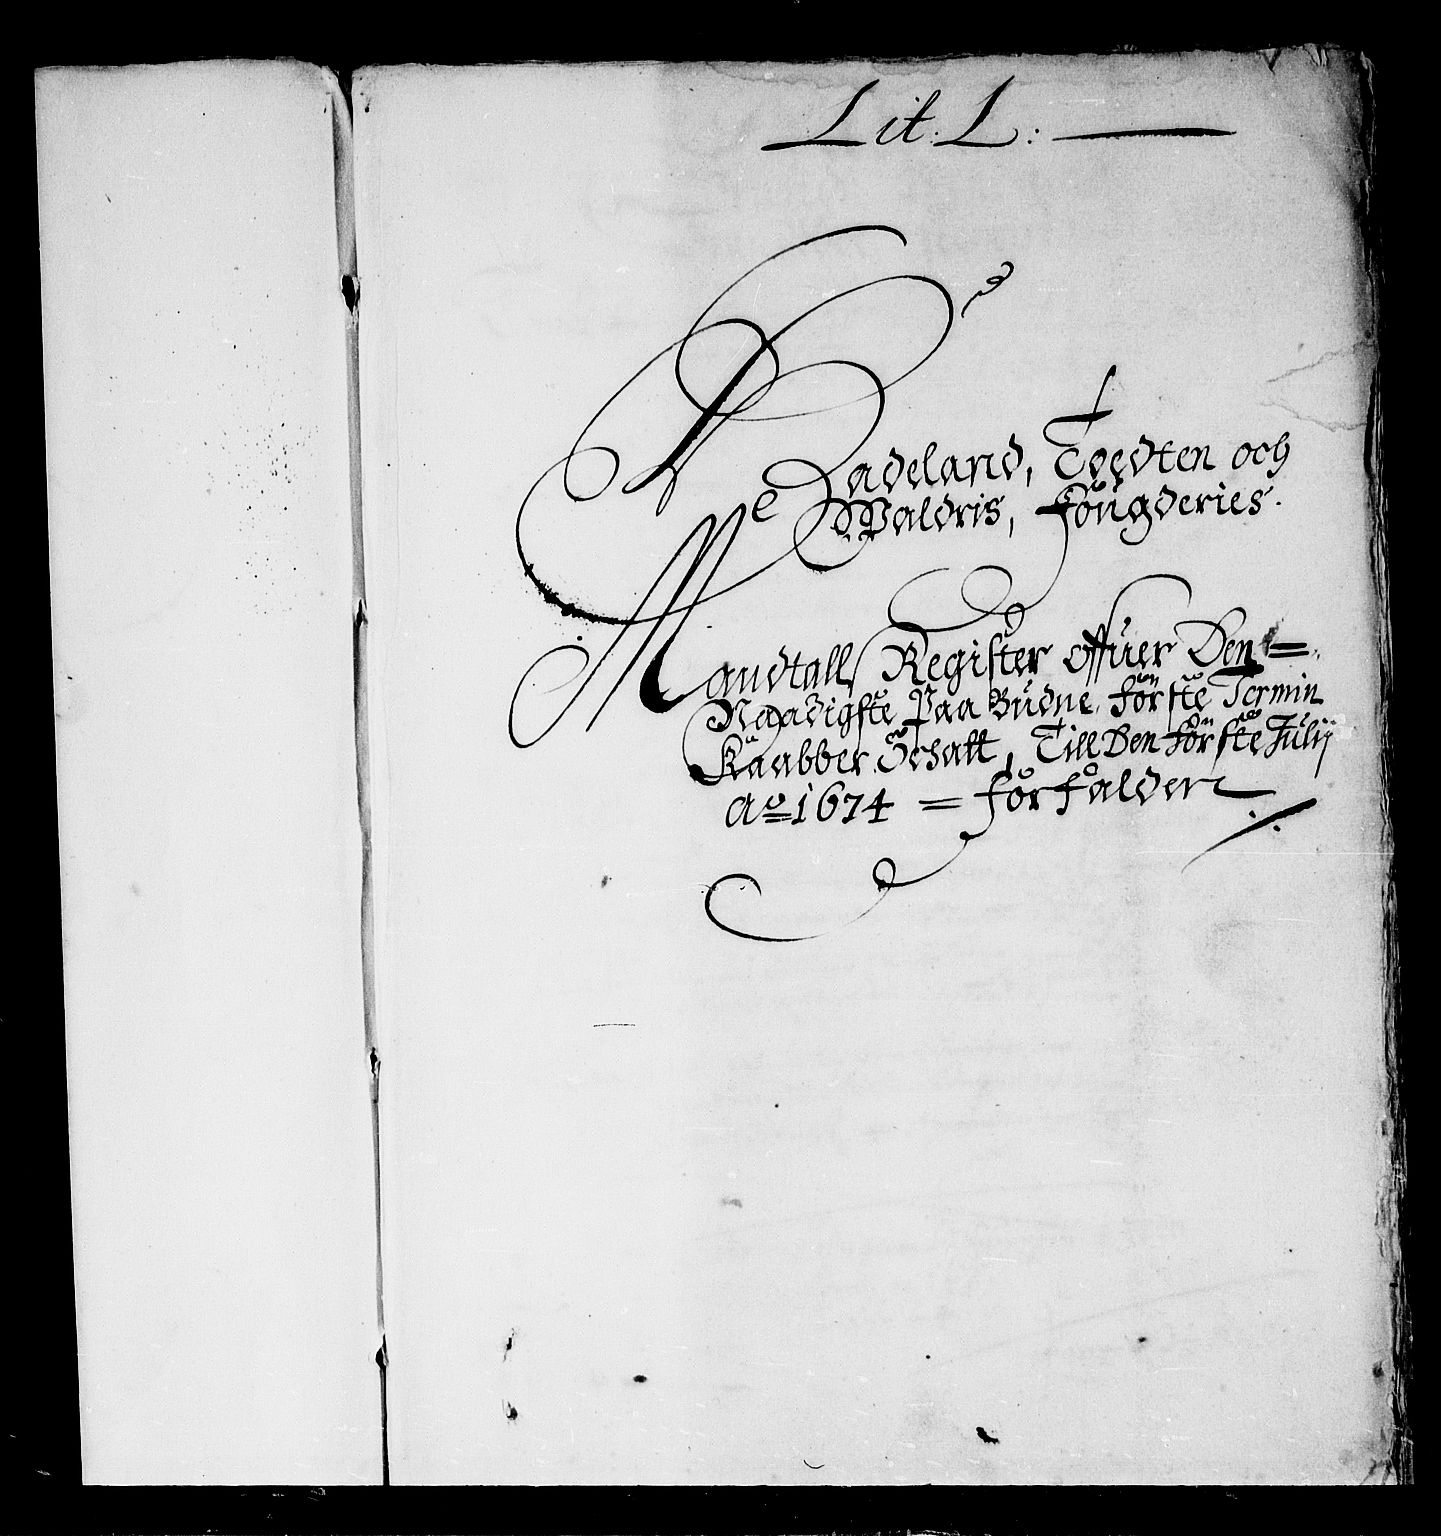 Lit: L:
Hadeland, Todten och
Waldris, fougderies.
Mandtall Register offuer Den =
Naadigste paa Budne förste Termin
Kaabber Schatt, Till Den förste Julij
Ao 1674 = forfalden